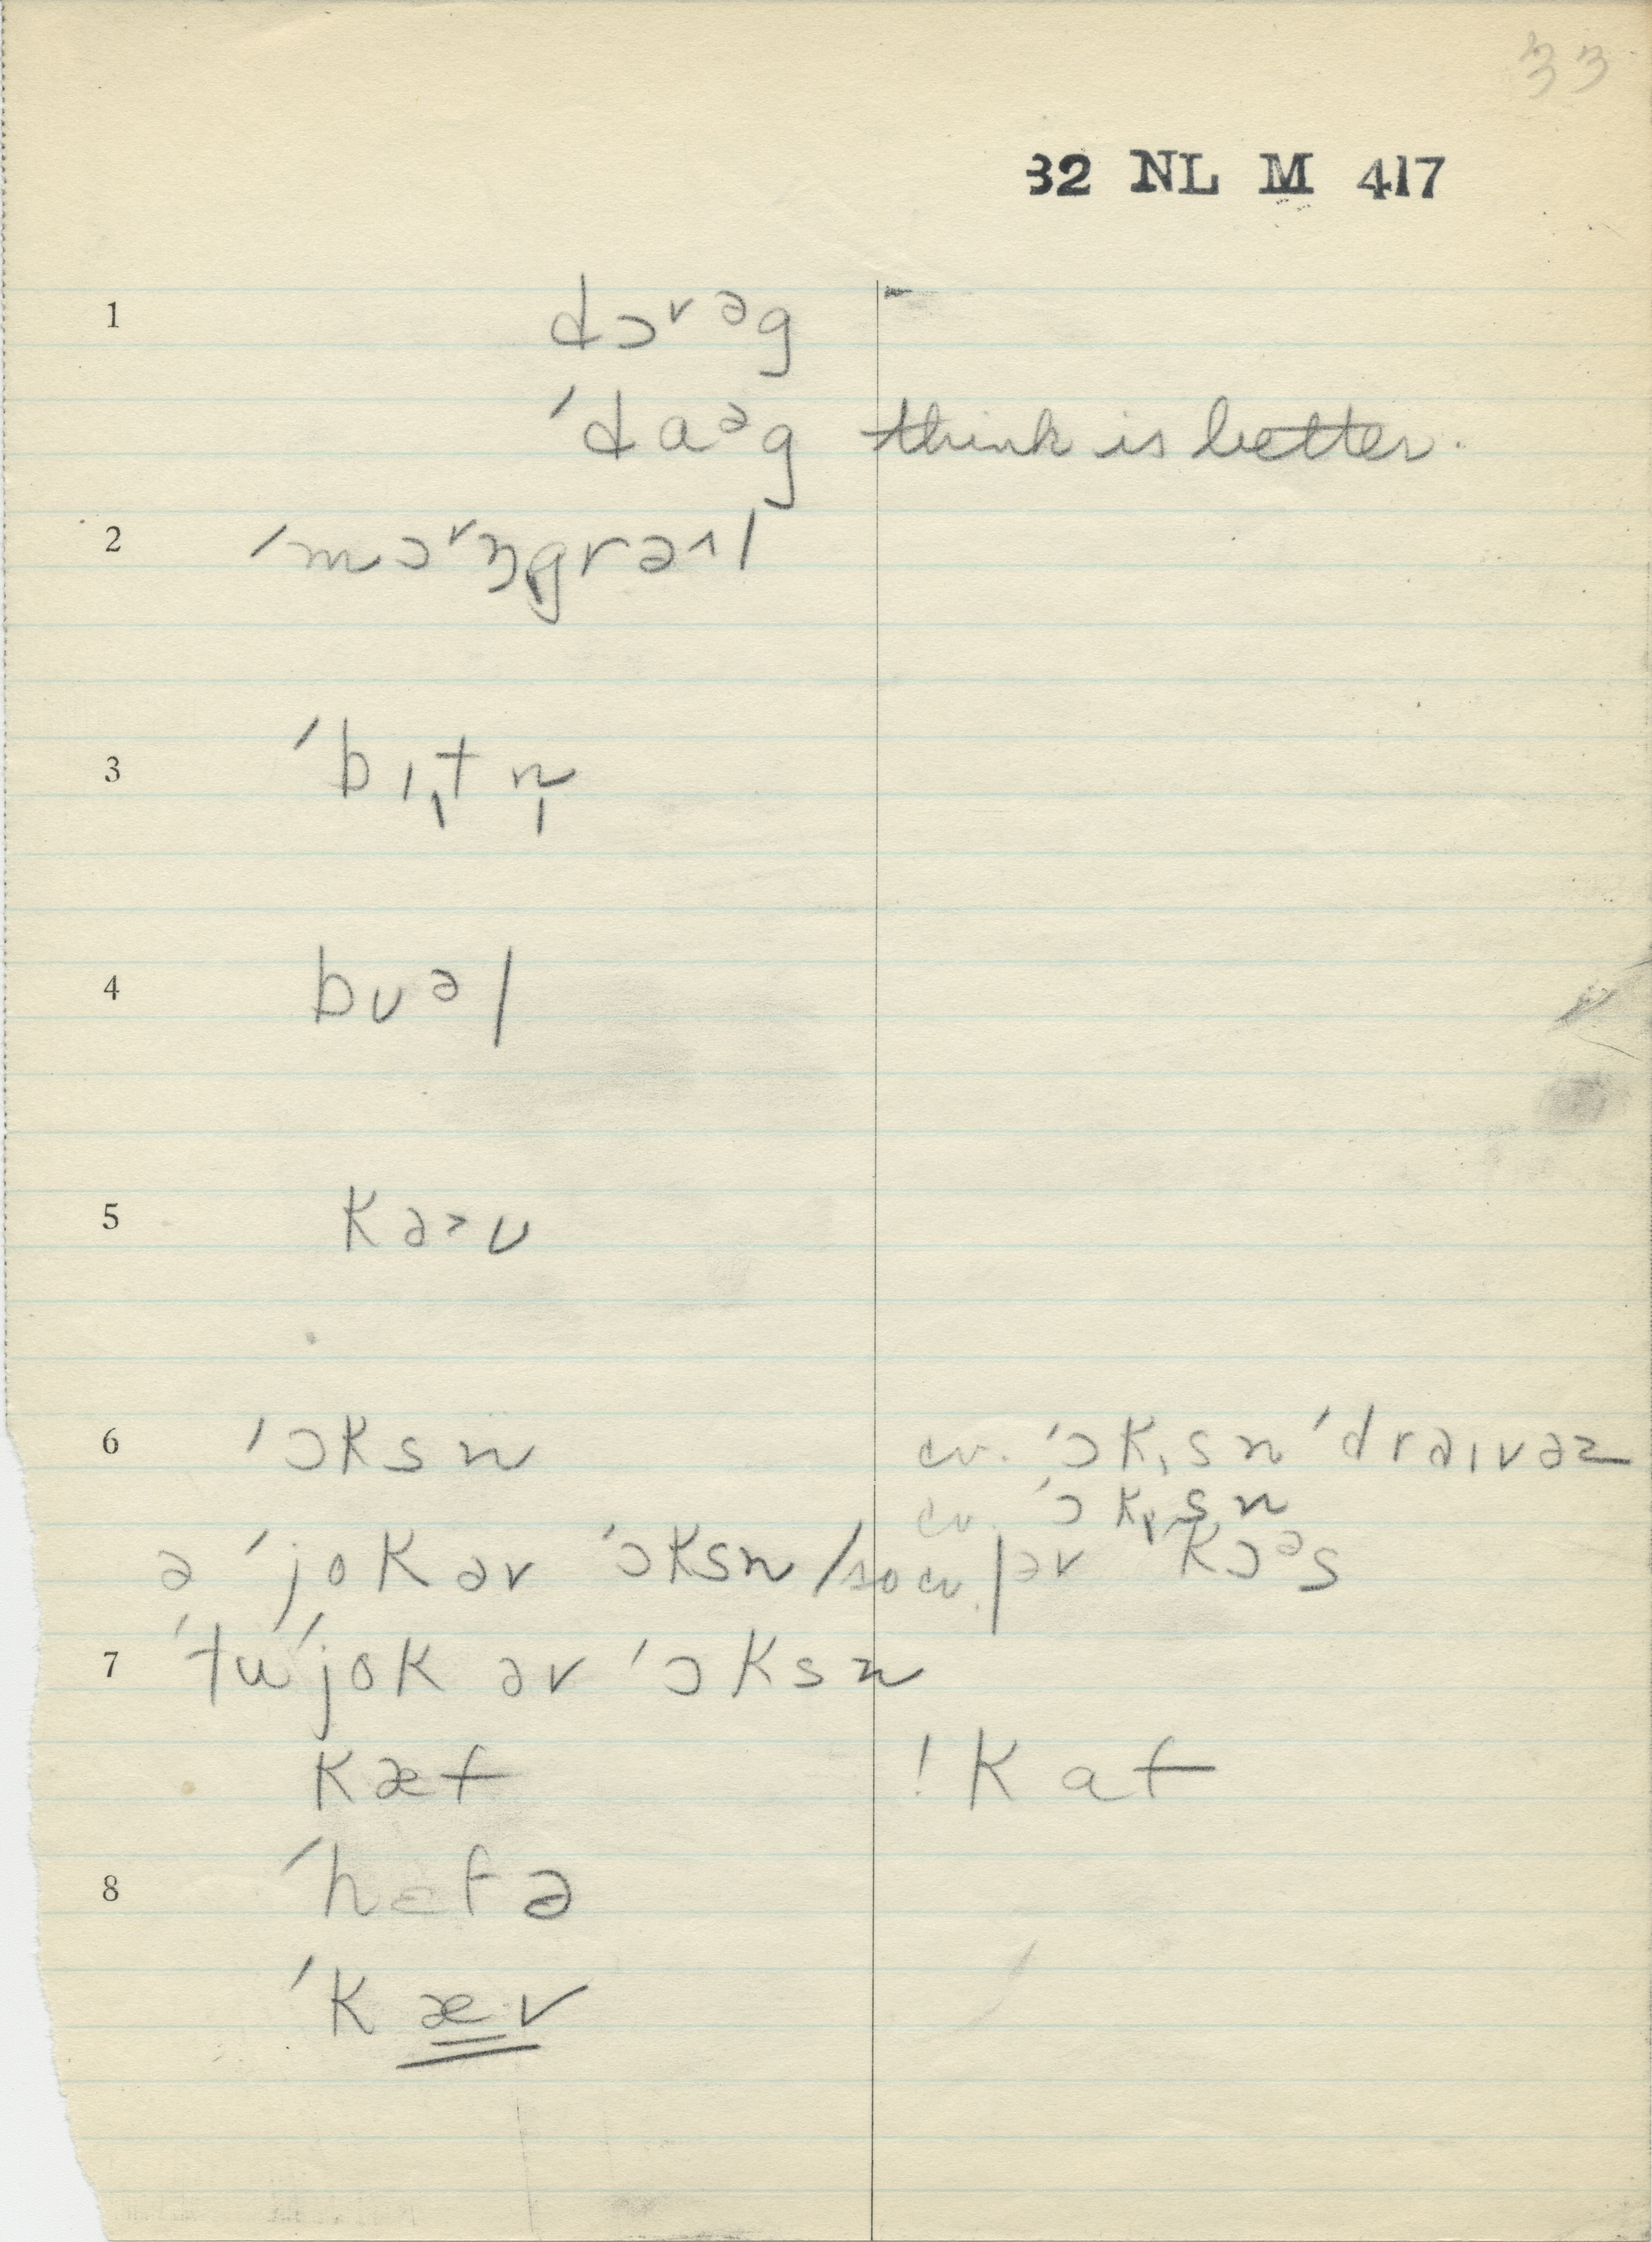 33
32 NL M 417
1 dɔ˅ᵊg
ˈdaᵊg think is better.
2 ˈmɔ˅ŋgrə˄ɪl
3 ˈbɪˌtn̩
4 bʊᵊl
5 kə˃ʊ
6 ˈɔksn cv. ˈɔkˌsn ˈdraɪvəz
cv. ˈɔkˌsn
ə ˈjok əv ˈɔksn / so cv. | əv ˈkɔᵊs
7 ˈtuˈjok əv ˈɔksn
kæf ! kaf
8 ˈhɛfə
ˈkæv